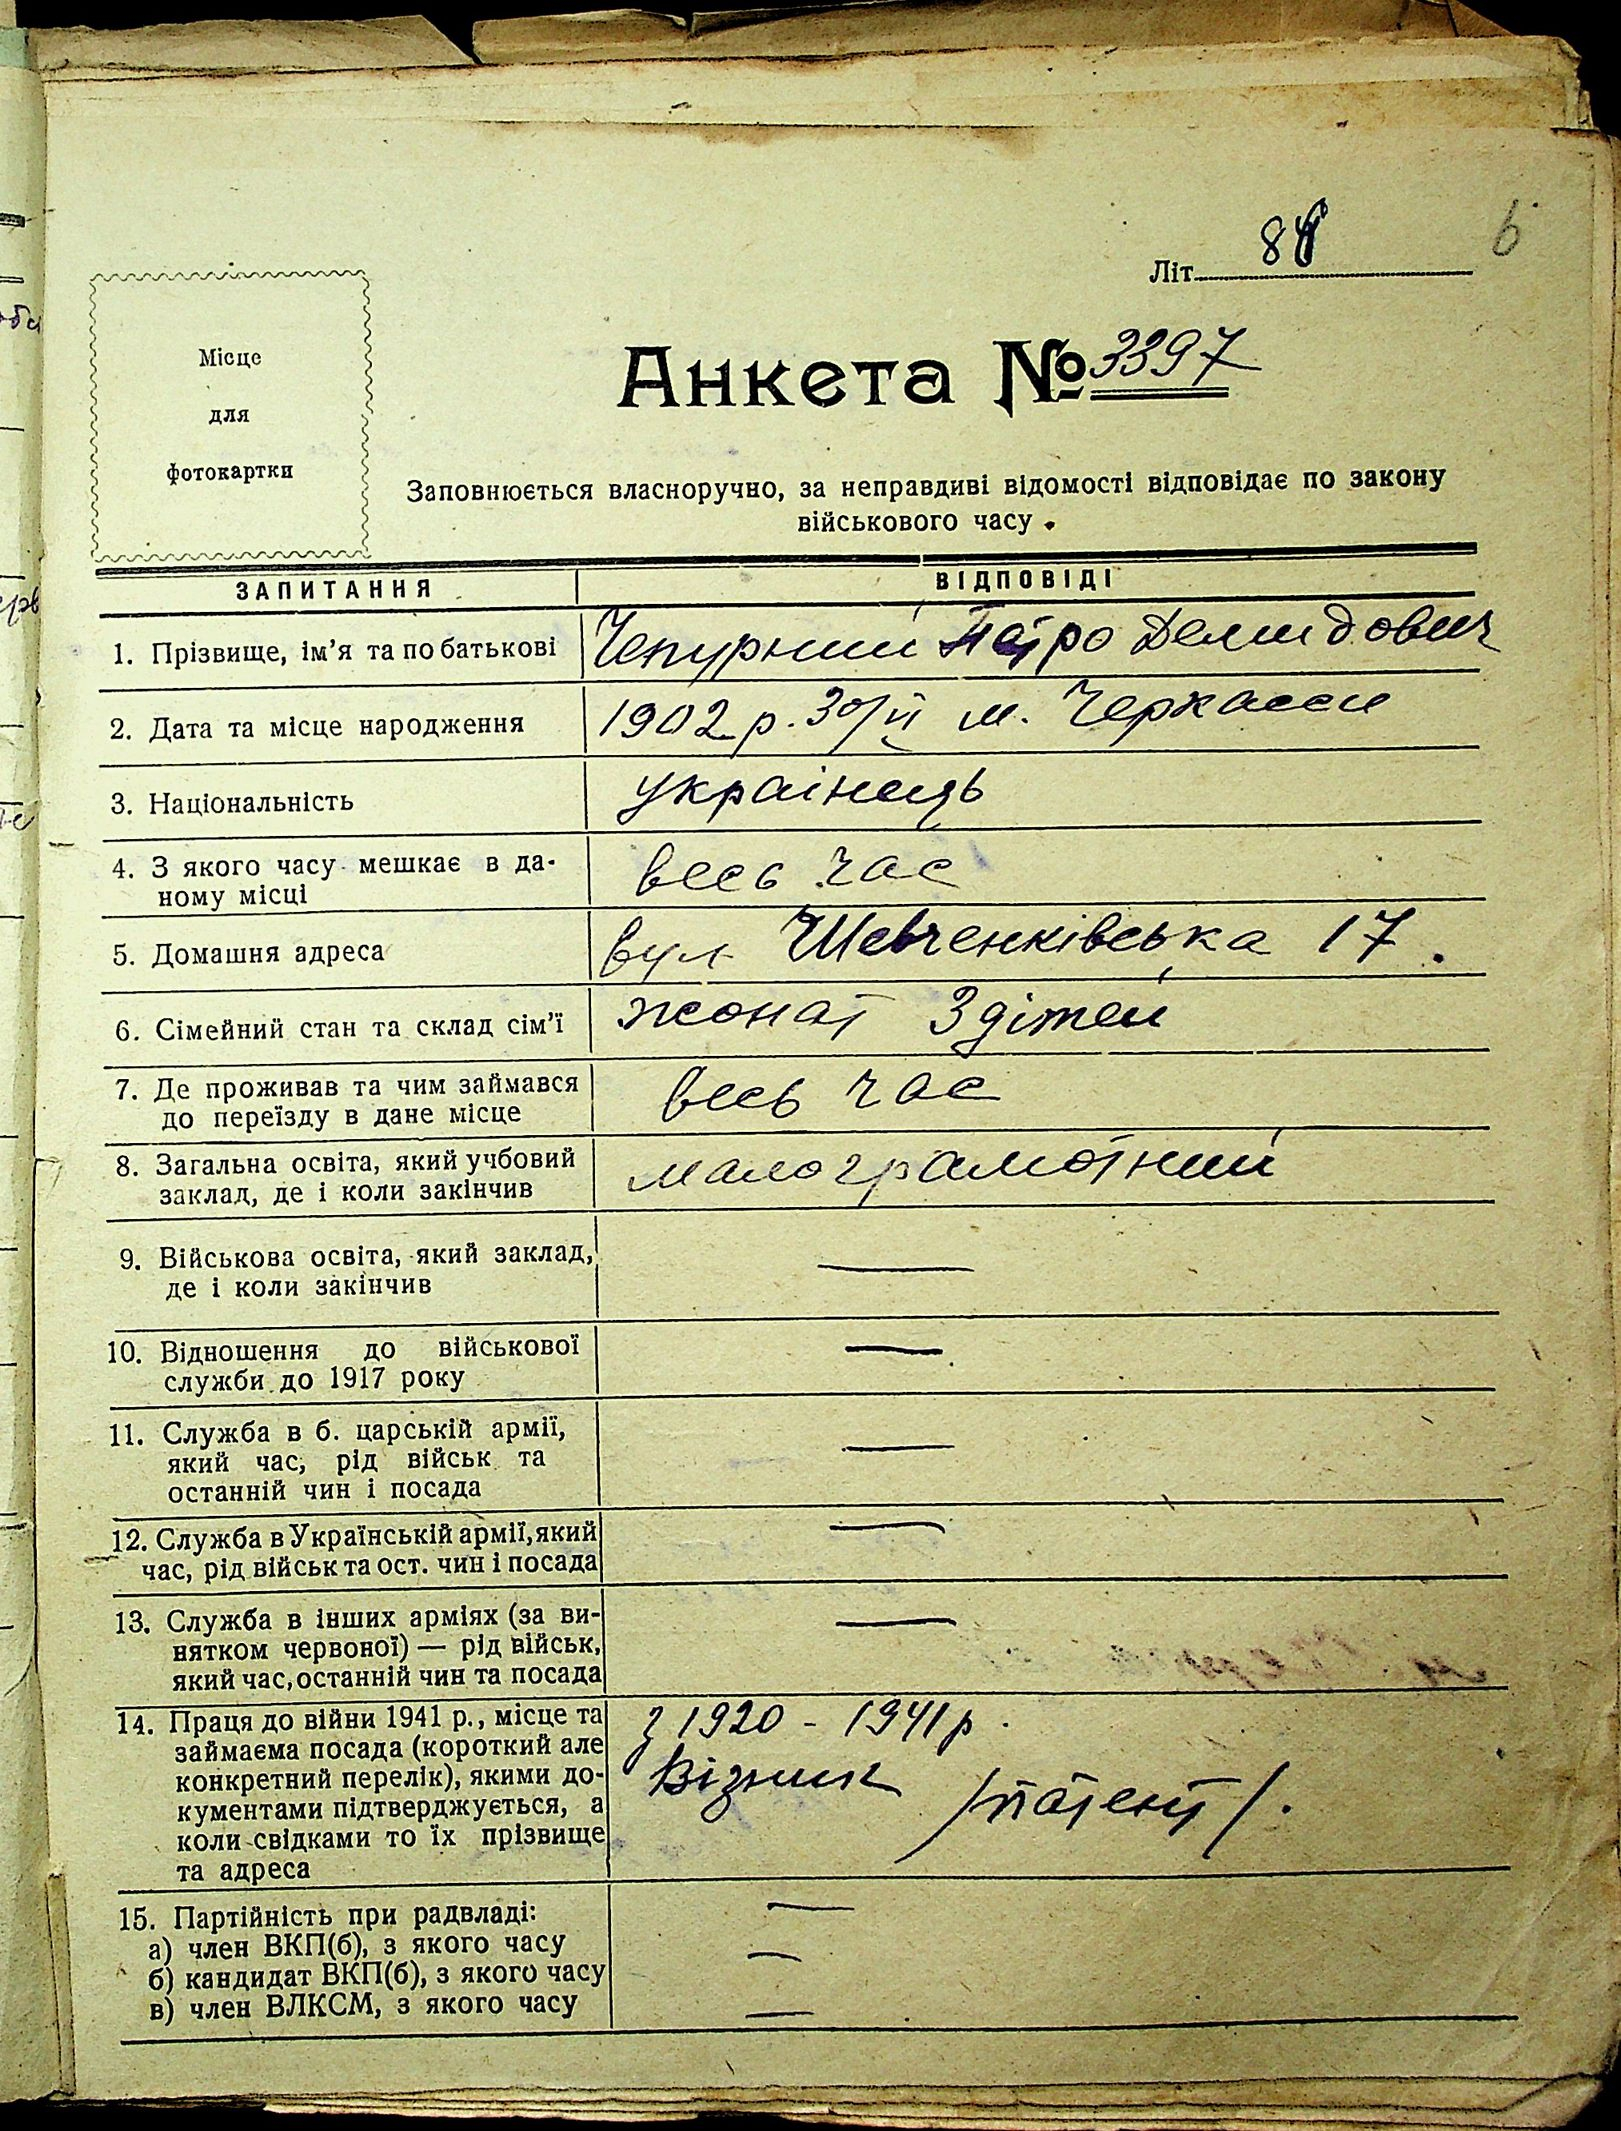 6
Літ.
Місце
для
фотокартки
Анкета № 3397
Заповнюється власноручно, за неправдиві відомості відповідає по закону
військового часу.
ЗАПИТАННЯ ВІДПОВІДІ
1. Прізвище, ім'я та по батькові Чепурний Петро Демидович
2. Дата та місце народження 1902 р. 30/VI м. Черкасси
3. Національність українець
4. З якого часу мешкає в да-
ному місці весь час
5. Домашня адреса вул Шевченківська 17.
6. Сімейний стан та склад сім'ї жонат 3 дітей
7. Де проживав та чим займався
до переїзду в дане місце весь час
8. Загальна освіта, який учбовий
заклад, де і коли закінчив малограмотний
9. Військова освіта, який заклад,
де і коли закінчив —
10. Відношення до військової
служби до 1917 року —
11. Служба в б. царській армії,
який час, рід військ та
останній чин і посада —
12. Служба в Українській армії, який
час, рід військ та ост. чин і посада —
13. Служба в інших арміях (за ви-
нятком червоної) — рід військ,
який час, останній чин та посада —
14. Праця до війни 1941 р., місце та
займаєма посада (короткий але
конкретний перелік), якими до-
кументами підтверджується, а
коли свідками то їх прізвище
та адреса
з 1920 - 1941 р.
Візник /патент/.
15. Партійність при радвладі: —
а) член ВКП(б), з якого часу —
б) кандидат ВКП(б), з якого часу
в) член ВЛКСМ, з якого часу —